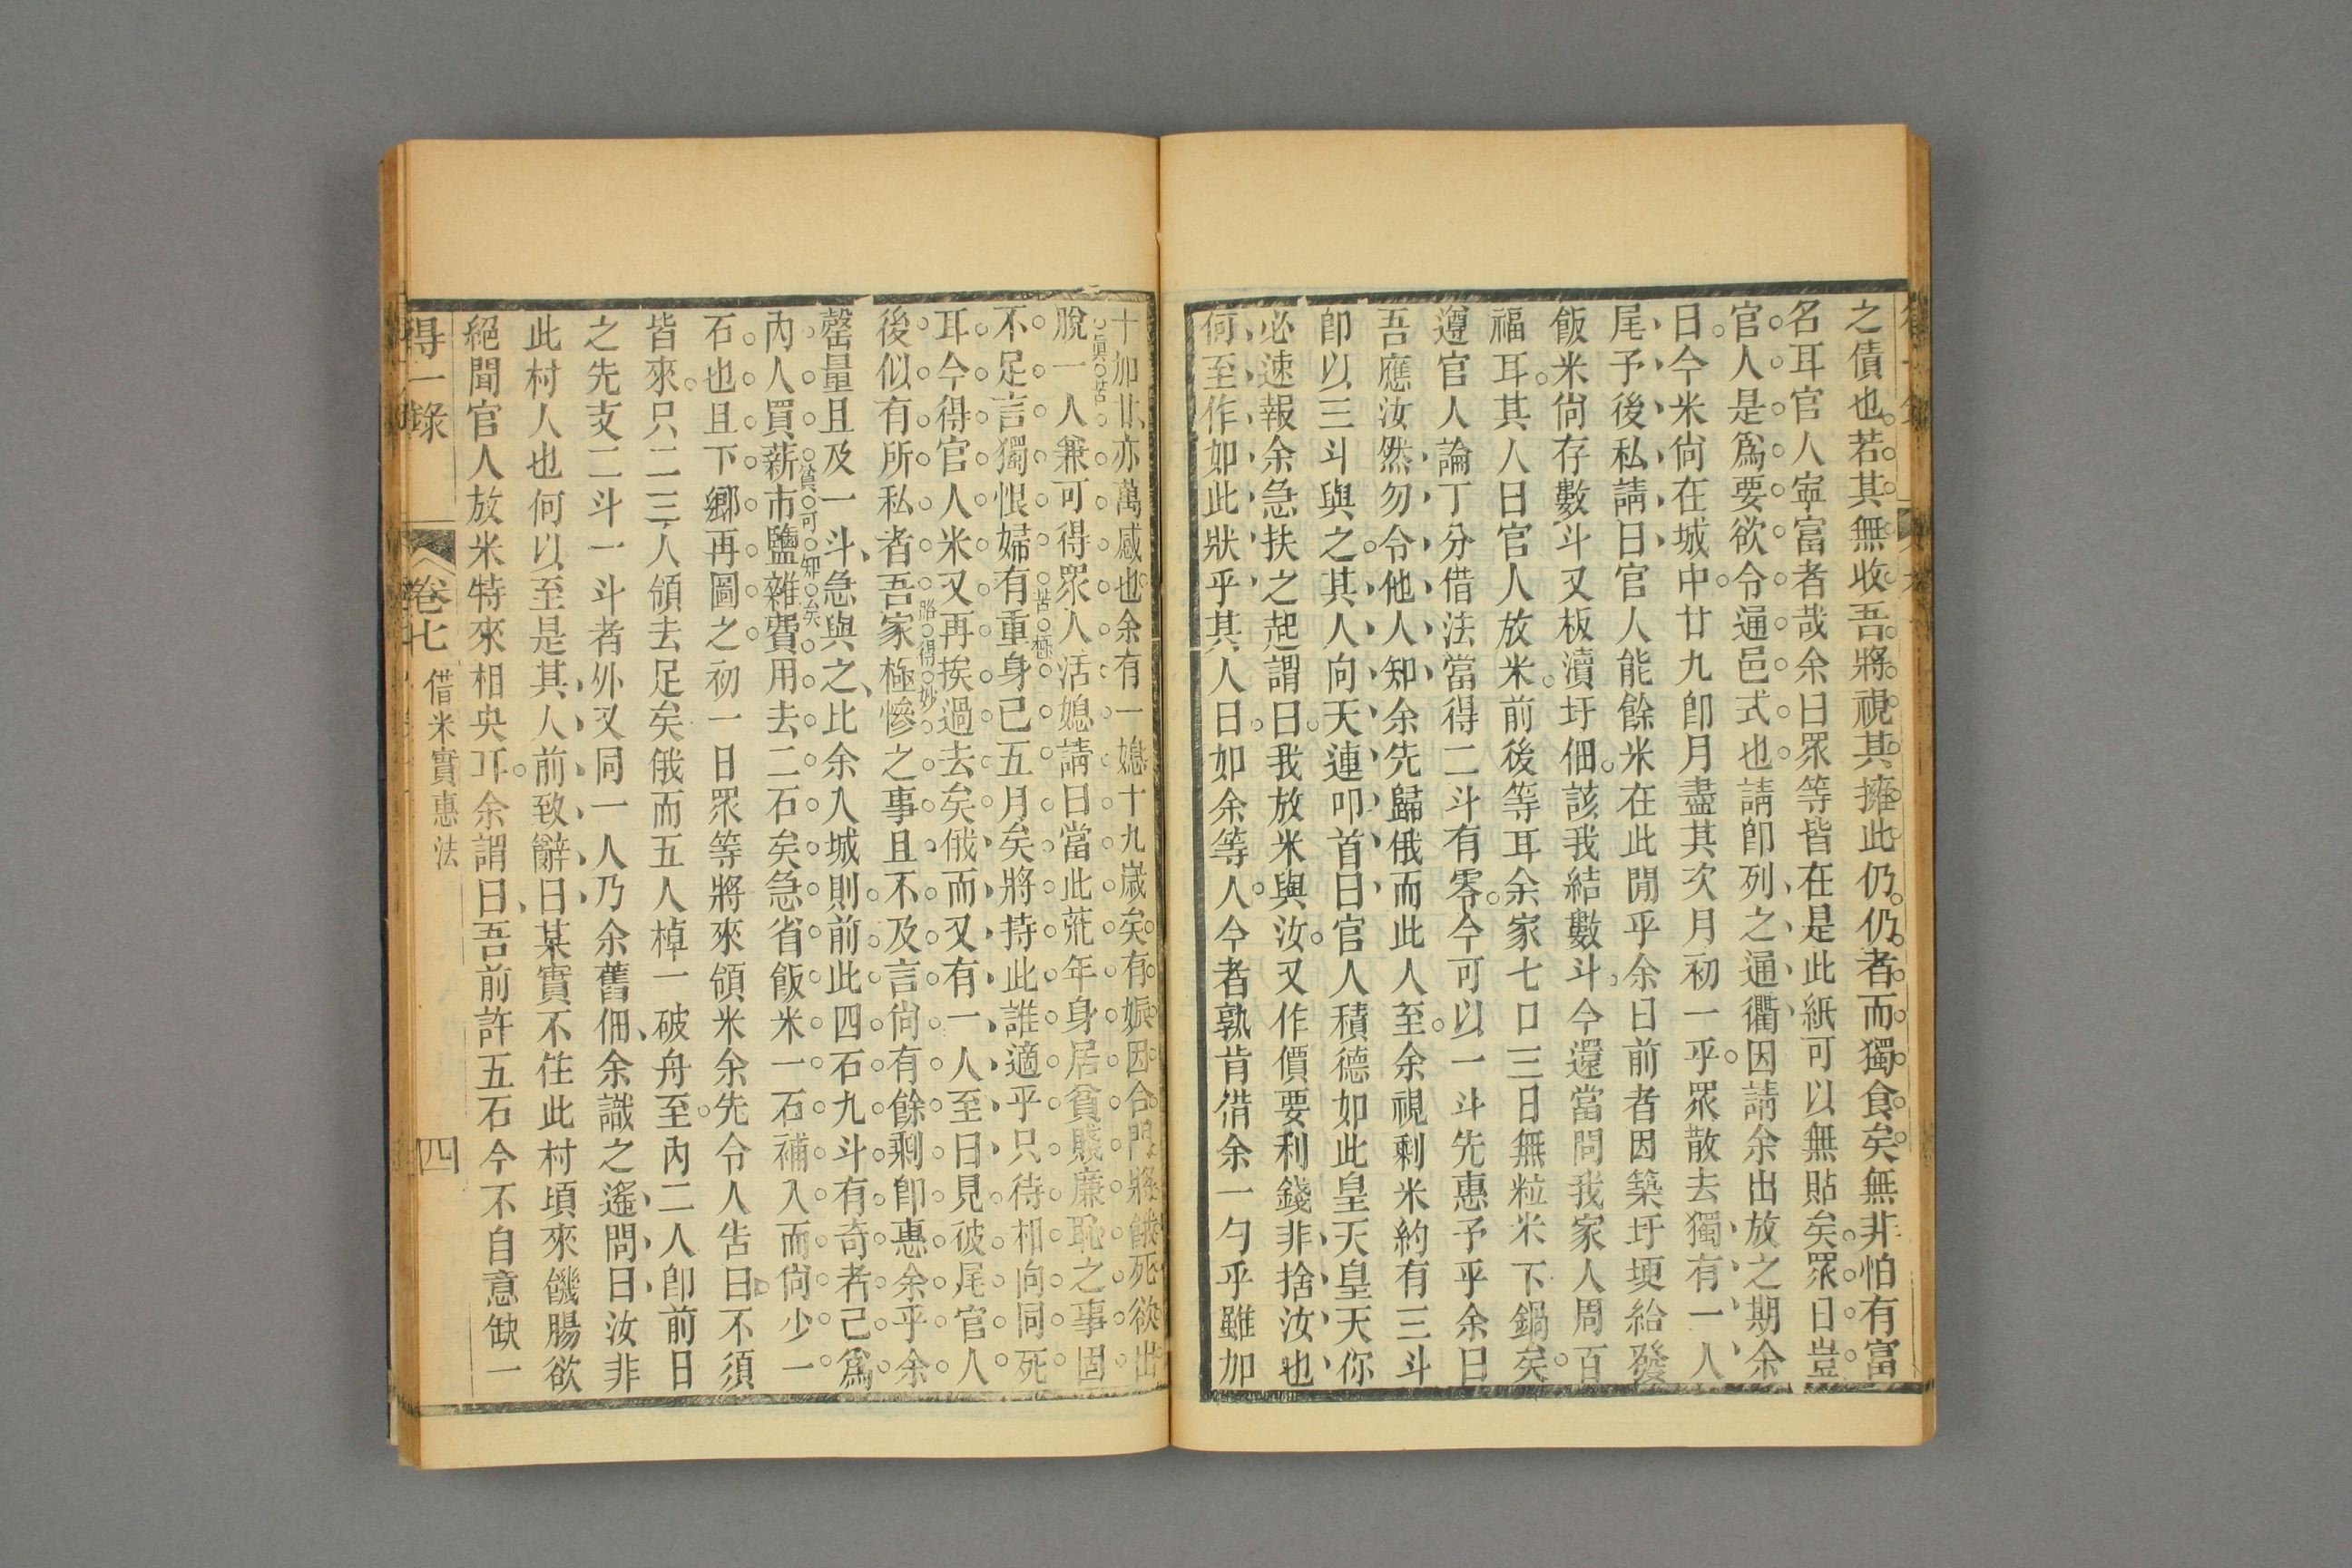 之債也若其無收吾將視其擁此仍仍者而獨食矣無非怕有富
名耳官人寧富者哉余曰眾等皆在是此紙可以無貼矣眾曰豈
官人是為要欲令通邑式也請即列之通衢因請余出放之期余
曰今米尚在城中廿九即月盡其次月初一乎眾散去獨有一人
尾予後私請曰官人能餘米在此閒乎余曰前者因築圩埂給發
飯米尚存數斗又板瀆圩佃該我結數斗今還當問我家人周百
福耳其人曰官人放米前後等耳余家七口三日無粒米下鍋矣
遵官人論丁分借法當得二斗有零今可以一斗先惠予乎余曰
吾應汝然勿令他人知余先歸俄而此人至余視剩米約有三斗
即以三斗與之其人向天連叩首曰官人積德如此皇天皇天你
必速報余急扶之起謂曰我放米與汝又作價要利錢非捨汝也
何至作如此狀乎其人曰如余等人今者孰肯借余一勺乎雖加
十加廿亦萬感也余有一媳十九歲矣有娠因合門將餓死欲出
脫一人兼可得眾人活媳請曰當此荒年身居貧賤廉恥之事固
不足言獨恨婦有重身已五月矣將持此誰適乎只待相向同死
苦極
耳今得官人米又再挨過去矣俄而又有一人至曰見彼尾官人
後似有所私者吾家極慘之事且不及言尚有餘剩即惠余乎余
畧得妙
罄量且及一斗急與之比余入城則前此四石九斗有奇者已為
內人買薪市鹽雜費用去二石矣急省飯米一石補入而尚少一
貧可知矣
石也且下鄉再圖之初一日眾等將來領米余先令人告曰不須
皆來只二三人領去足矣俄而五人棹一破舟至內二人即前日
之先支二斗一斗者外又同一人乃余舊佃余識之遙問曰汝非
此村人也何以至是其人前致辭曰某實不住此村頃來饑腸欲
絕聞官人放米特來相央耳余謂曰吾前許五石今不自意缺一
得一錄
卷七 借米實惠法
四